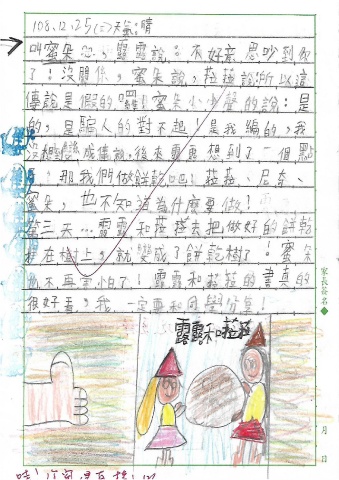 108.12.25(三)天氣:晴
叫蜜朵。露露說:不好意思吵到你
了!沒關係,蜜朵說,菈菈說:所以這
傳說是假的囉!蜜朵小小聲的說:是
的,是騙人的對不起,是我編的,我
沒想變成傳說,後來露露想到了一個點
,那我們做餅乾吧!菈菈、尼奇、
蜜朵,也不知道為什麼要做!
第三天…露露和菈菈去把做好的餅乾
掛在樹上,就變成了餅乾樹了!蜜朵
也不再害怕了!露露和菈菈的書真的
很好看,我一定要和同學分享!
家長簽名
露露和菈菈
月
日